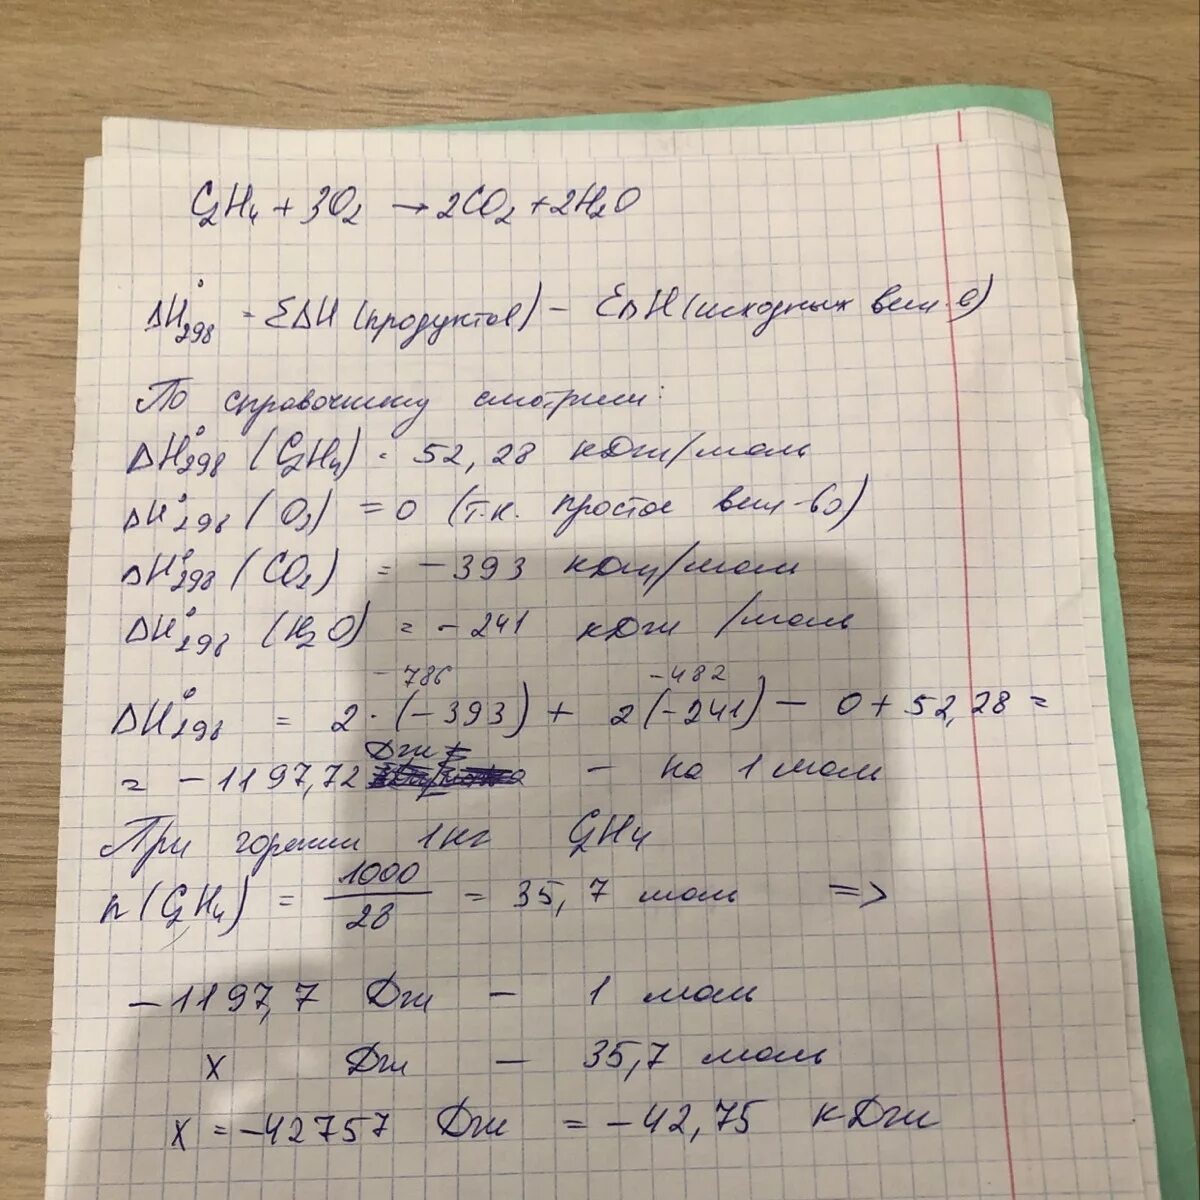 C₂H₄ + 3O₂ → 2CO₂ + 2H₂O
ΔH°₂₉₈ = ΣΔH (продуктов) – ΣΔH (исходных вещ-в)
По справочнику смотрим:
ΔH°₂₉₈ (C₂H₄) = 52,28 кДж/моль
ΔH°₂₉₈ (O₂) = 0 (т.к. простое вещ-во)
ΔH°₂₉₈ (CO₂) = – 393 кДж/моль
ΔH°₂₉₈ (H₂O) = – 241 кДж /моль
– 786 – 482
ΔH°₂₉₈ = 2 · (– 393) + 2 (– 241) – 0 + 52,28 =
Дж
= – 1197,72 – на 1 моль
При горении 1 кг C₂H₄
n (C₂H₄) = 1000/28 = 35,7 моль =>
– 1197,7 Дж – 1 моль
x Дж – 35,7 моль
x = – 42757 Дж = – 42,75 кДж